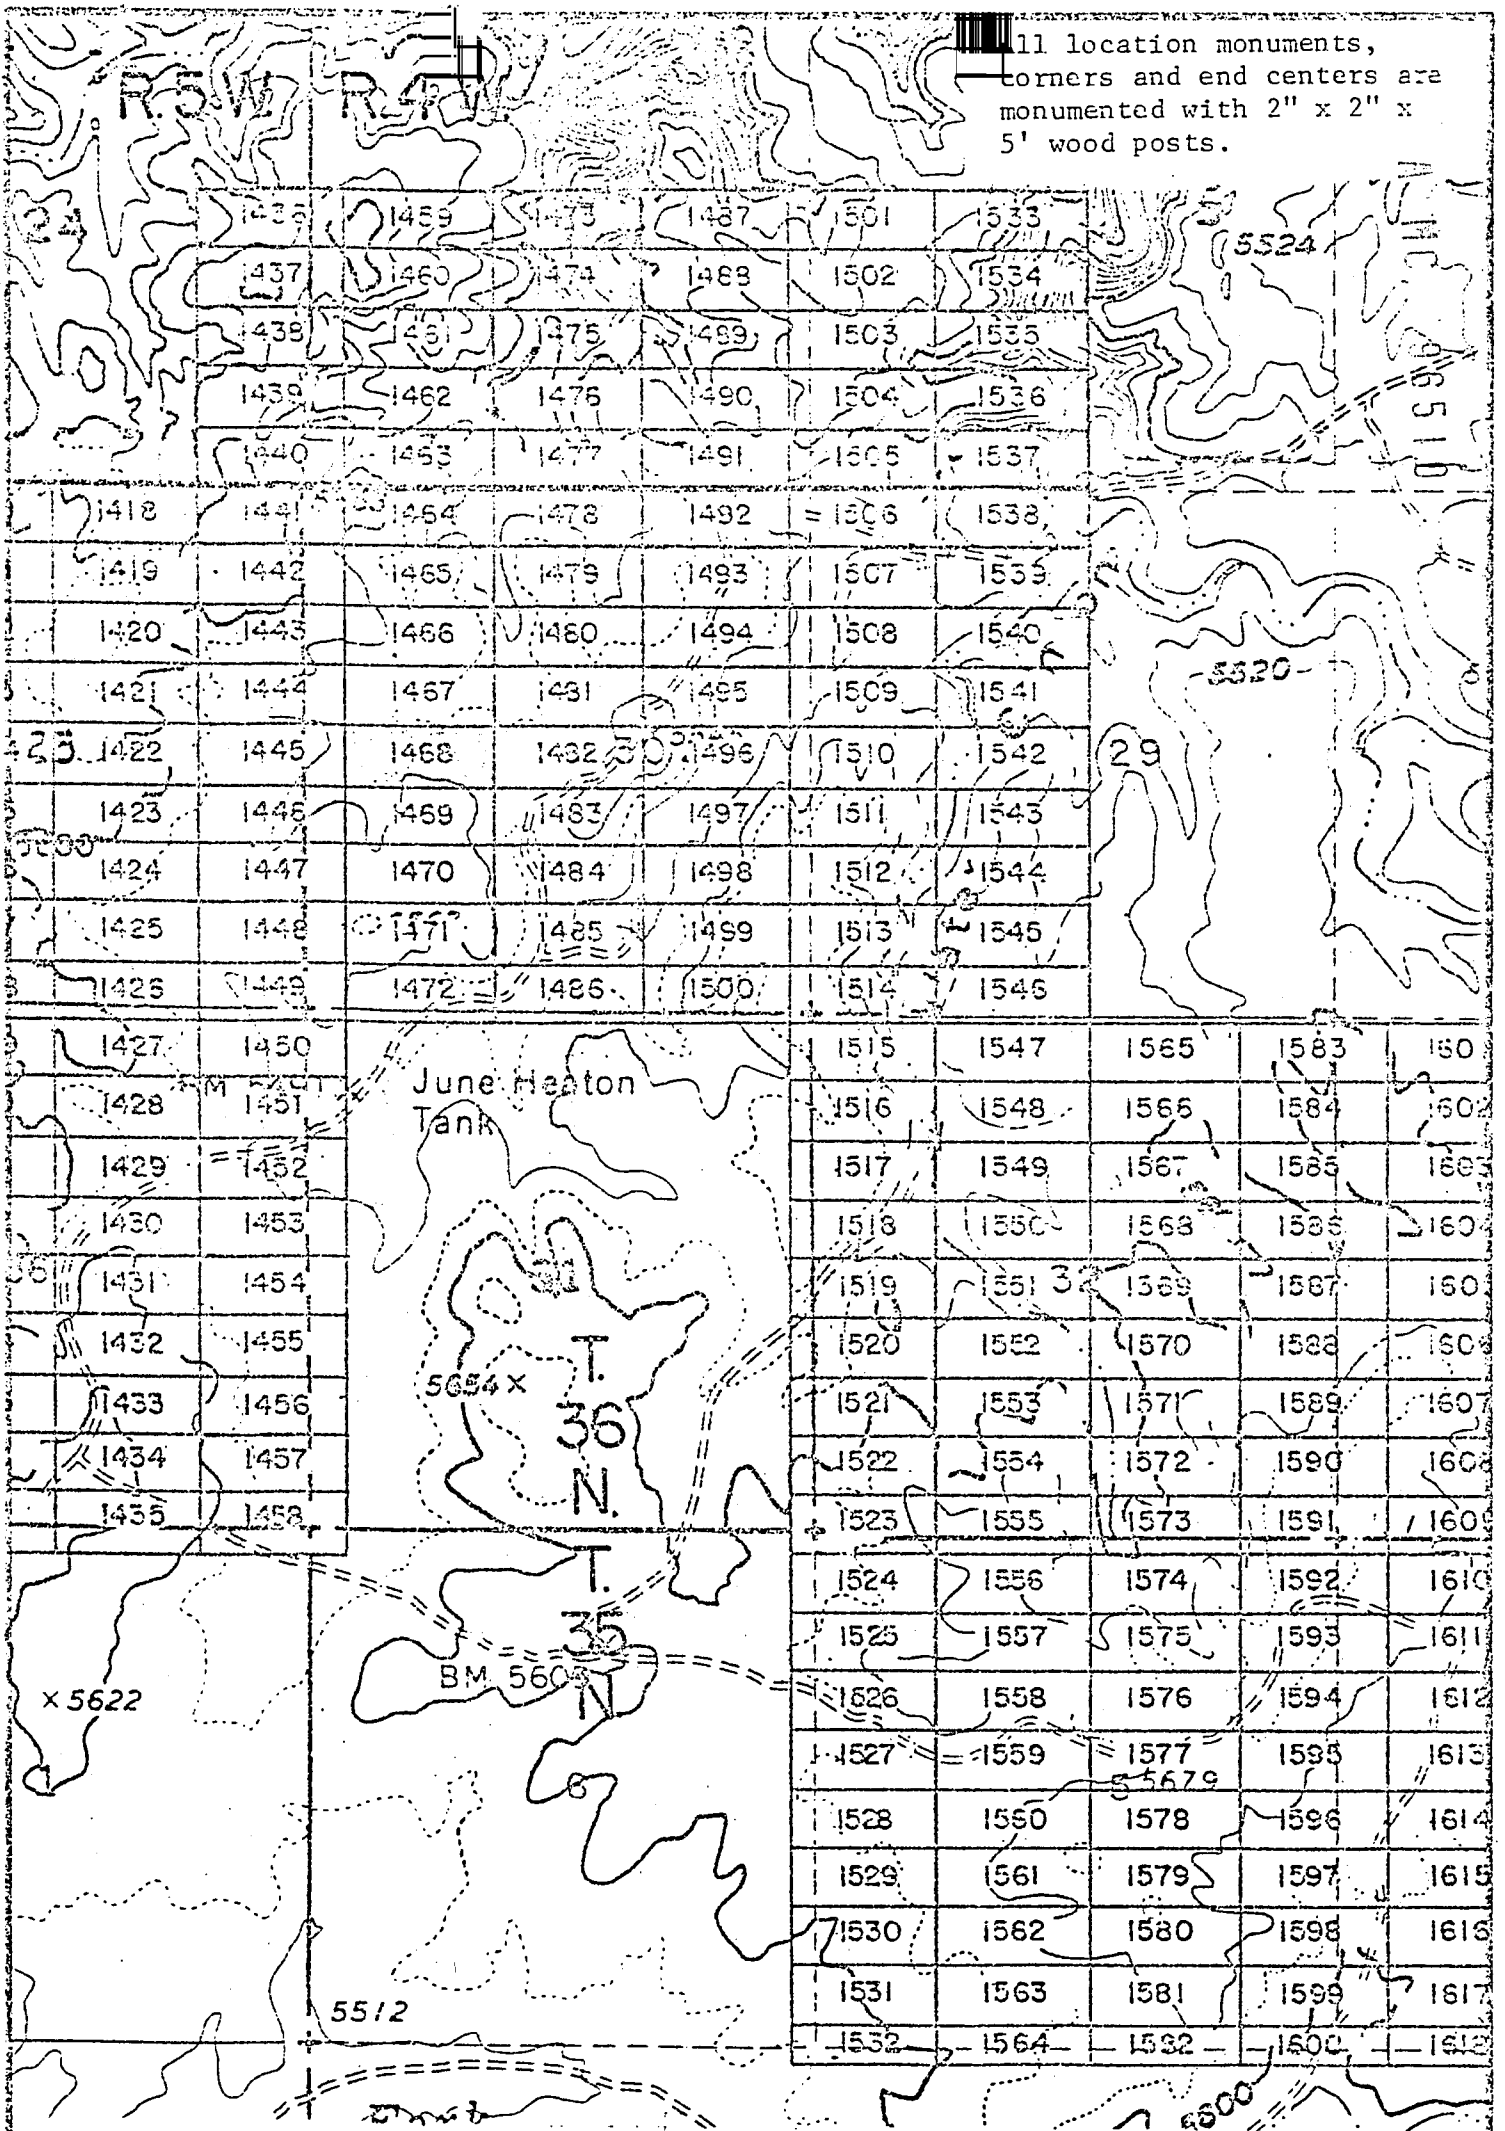 11 location monuments,
corners and end centers are
monumented with 2" x 2" x
5' wood posts.
R.5W. R.4W.
24 1436 1459 1473 1487 1501 1533
5524
1437 1460 1474 1488 1502 1534
1438 1461 1475 1489 1503 1535
1439 1462 1476 1490 1504 1536
1440 1463 1477 1491 1505 1537
1418 1441 1464 1478 1492 1506 1538
1419 1442 1465 1479 1493 1507 1539
1420 1443 1466 1480 1494 1508 1540
1421 1444 1467 1481 1495 1509 1541
5520
1422 1445 1468 1482 30 1496 1510 1542 29
1423 1446 1469 1483 1497 1511 1543
1424 1447 1470 1484 1498 1512 1544
1425 1448 1471 1485 1499 1513 1545
1426 1449 1472 1486 1500 1514 1546
1427 1450 1515 1547 1565 1583
June Heaton
Tank
1428 1451 1516 1548 1566 1584 1602
1429 1452 1517 1549 1567 1585 1603
1430 1453 1518 1550 1568 1586 1604
1431 1454 31 1519 1551 32 1569 1587
1432 1455 1520 1552 1570 1588 1606
5654 ×
1433 1456 1521 1553 1571 1589 1607
1434 1457 1522 1554 1572 1590 1608
1435 1458 1523 1555 1573 1591 1609
T.
36
N.
T.
35
N
1524 1556 1574 1592 1610
1525 1557 1575 1593 1611
BM 560
× 5622
1526 1558 1576 1594 1612
1527 1559 1577 1595 1613
5 5679
6
1528 1560 1578 1596 1614
1529 1561 1579 1597 1615
1530 1562 1580 1598 1616
1531 1563 1581 1599 1617
5512
1532 1564 1582 1600 1618